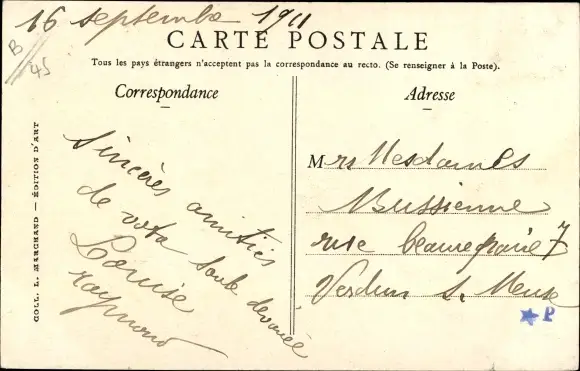 16 septembre 1911
B
45
CARTE POSTALE
Tous les pays étrangers n'acceptent pas la correspondance au recto. (Se renseigner à la Poste).
Correspondance
Sincères amitiés
de votre toute dévouée
Louise
Raymond
Adresse
Mrs Mesdames
Mussienne
rue beaurepaire 7
Verdun s. Meuse
P
COLL. L. MARCHAND — ÉDITION D'ART